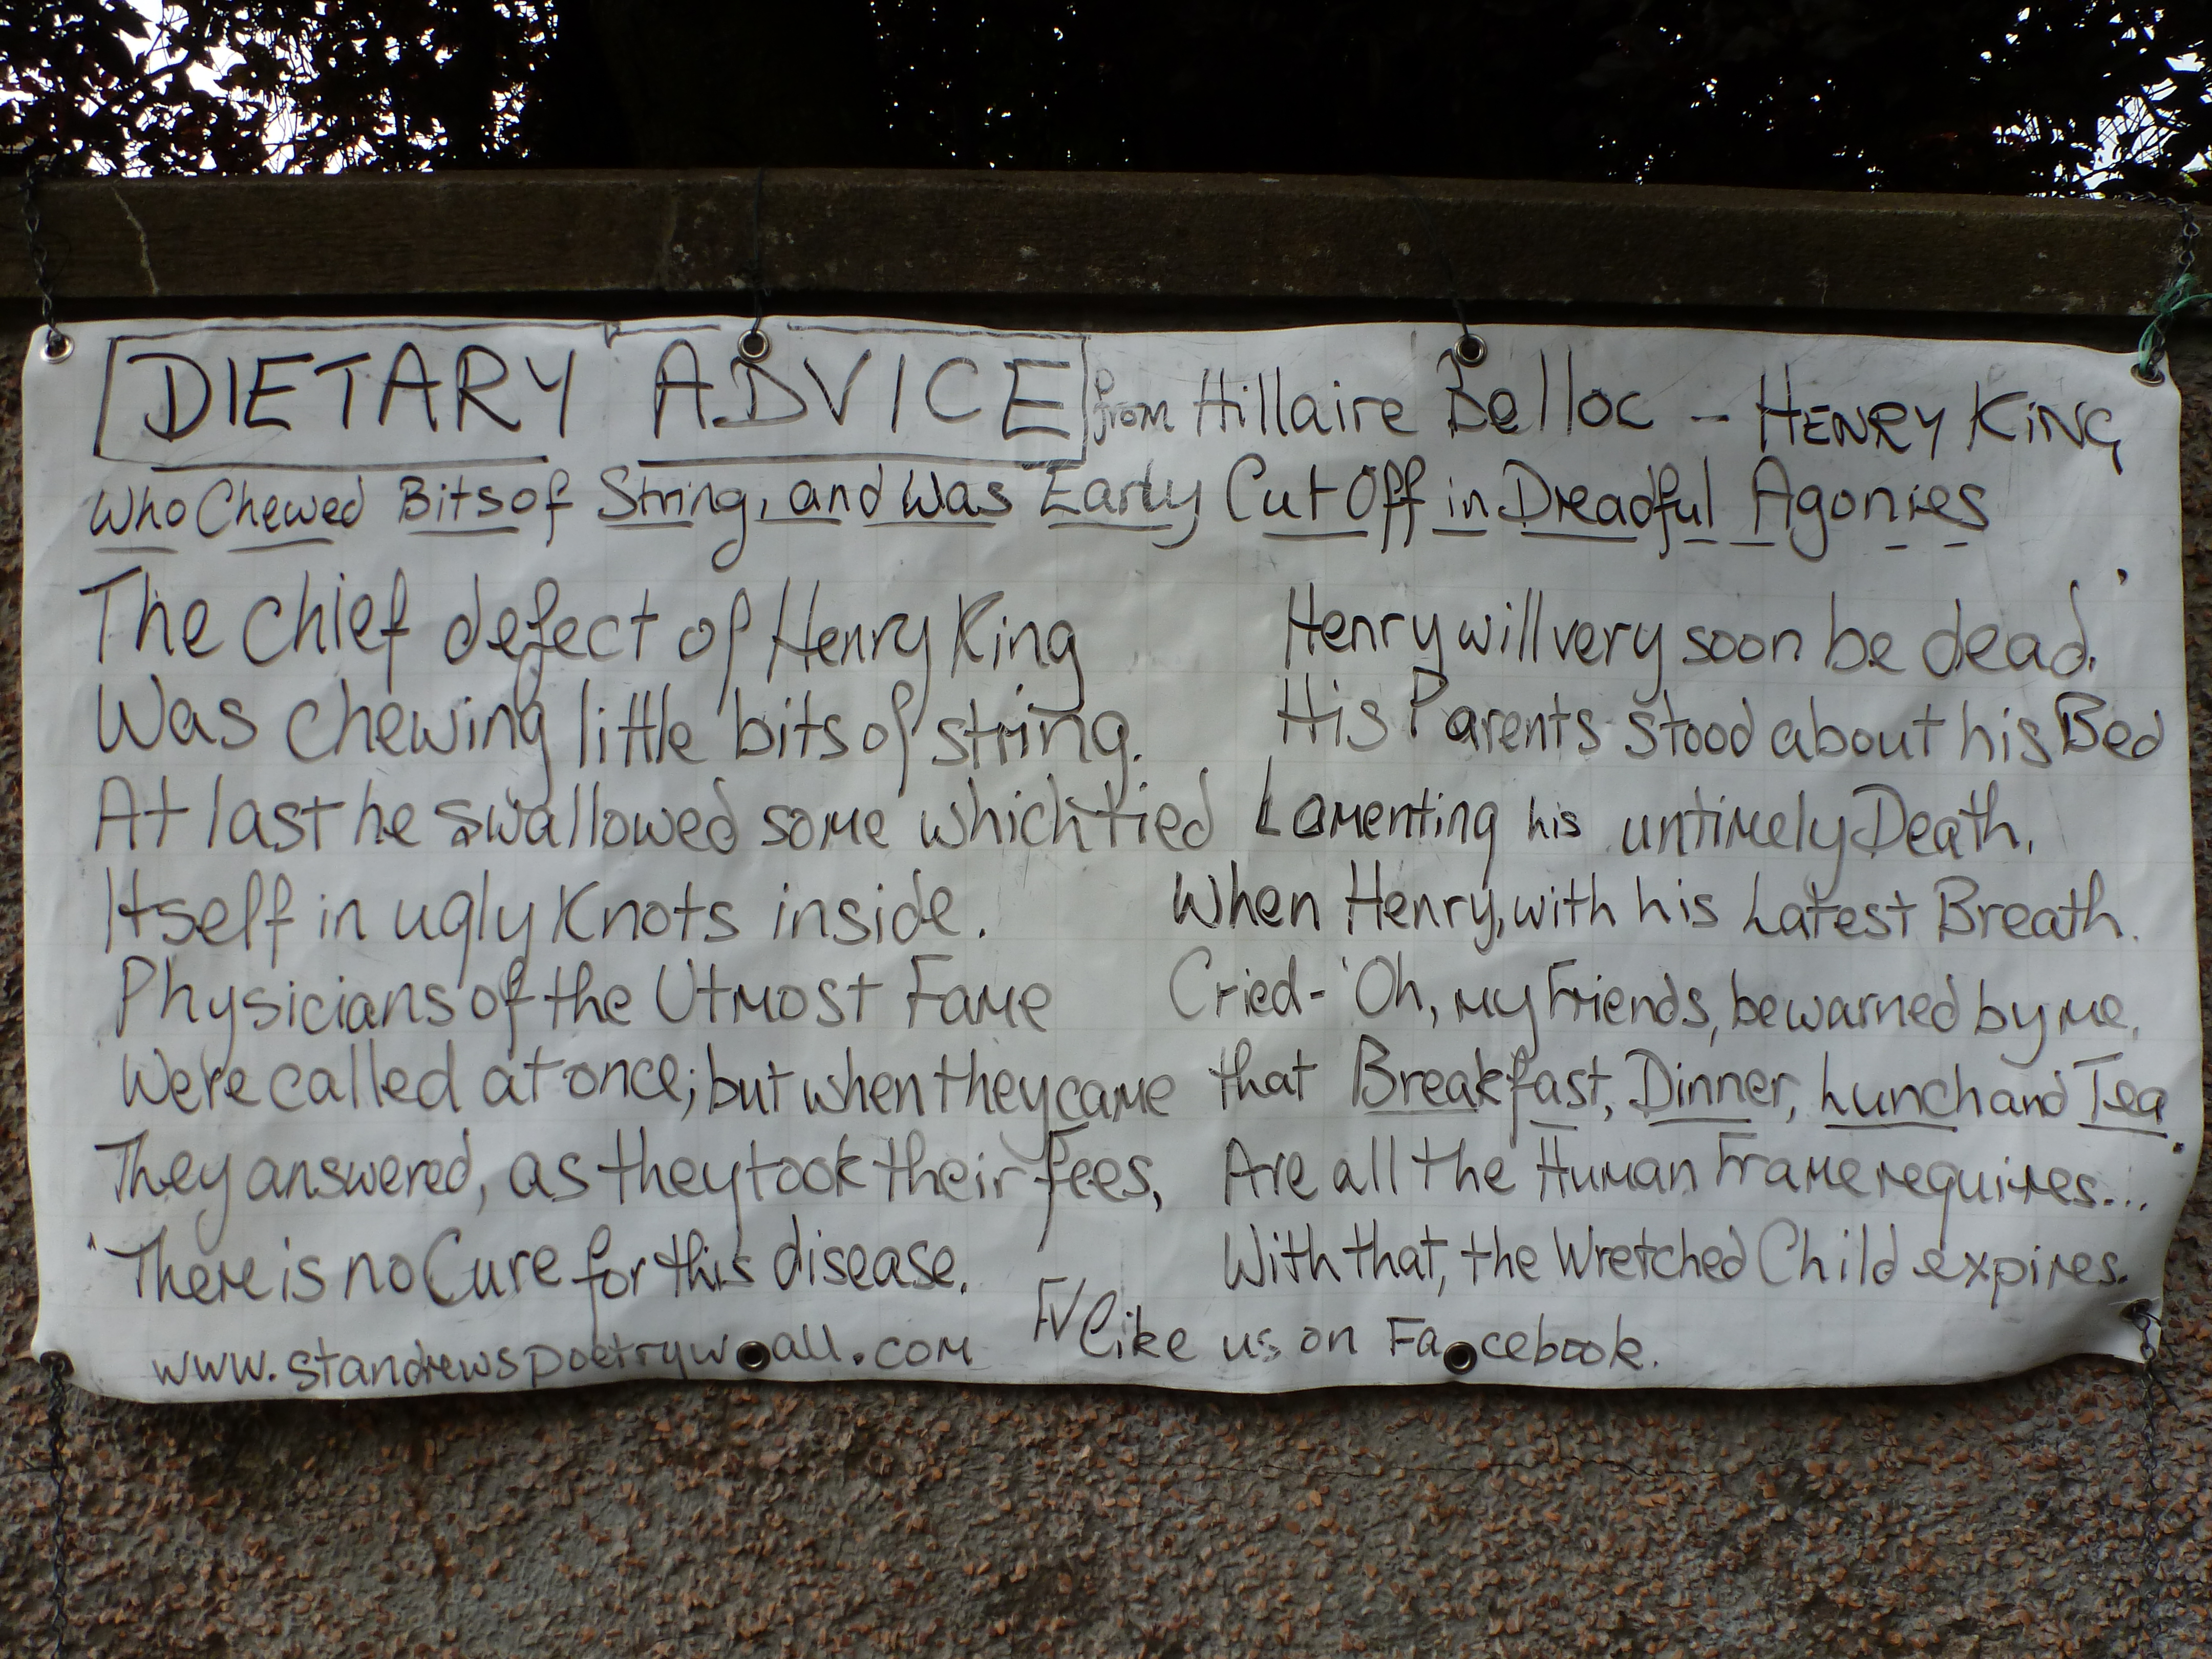 DIETARY ADVICE from Hillaire Belloc - HENRY KING,
Who Chewed Bits of String, and Was Early Cut Off in Dreadful Agonies
The Chief defect of Henry King
Was chewing little bits of string.
At last he swallowed some which tied
Itself in ugly Knots inside.
Physicians of the Utmost Fame
Were called at once; but when they came
They answered, as they took their Fees,
'There is no Cure for this disease.
Henry will very soon be dead.'
His Parents stood about his Bed
Lamenting his untimely Death,
When Henry, with his Latest Breath.
Cried- 'Oh, my Friends, be warned by me,
that Breakfast, Dinner, Lunch and Tea
Are all the Human Frame requires...'
With that, the Wretched Child expires.
www.standrewspoetrywall.com
like us on Facebook.